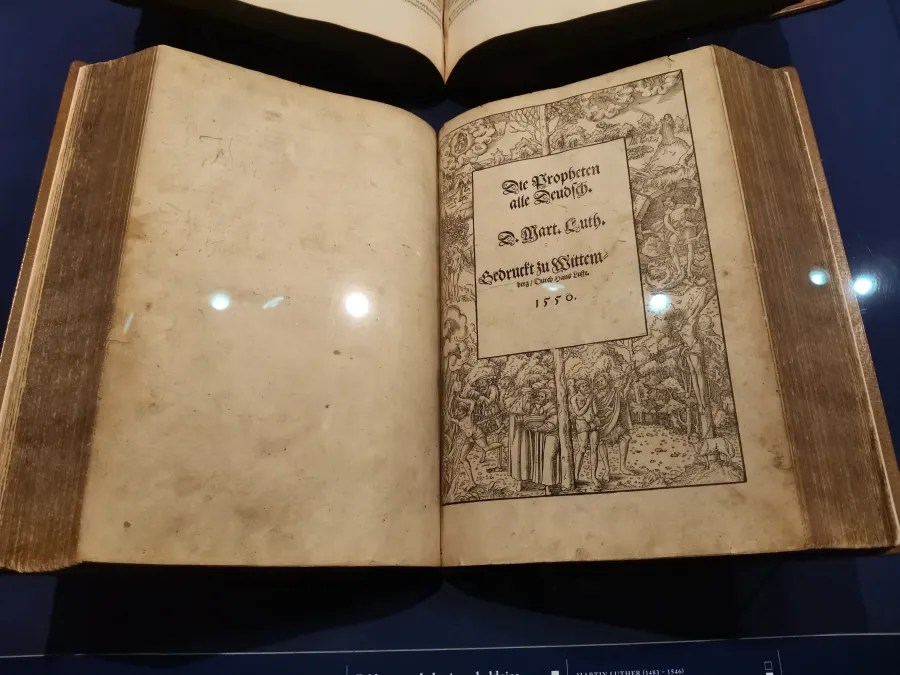 Die Propheten
alle Deudsch.
D. Mart. Luth.
Gedruckt zu Wittem-
berg / Durch Hans Lufft.
1550.
MARTIN LUTHER (1483 - 1546)